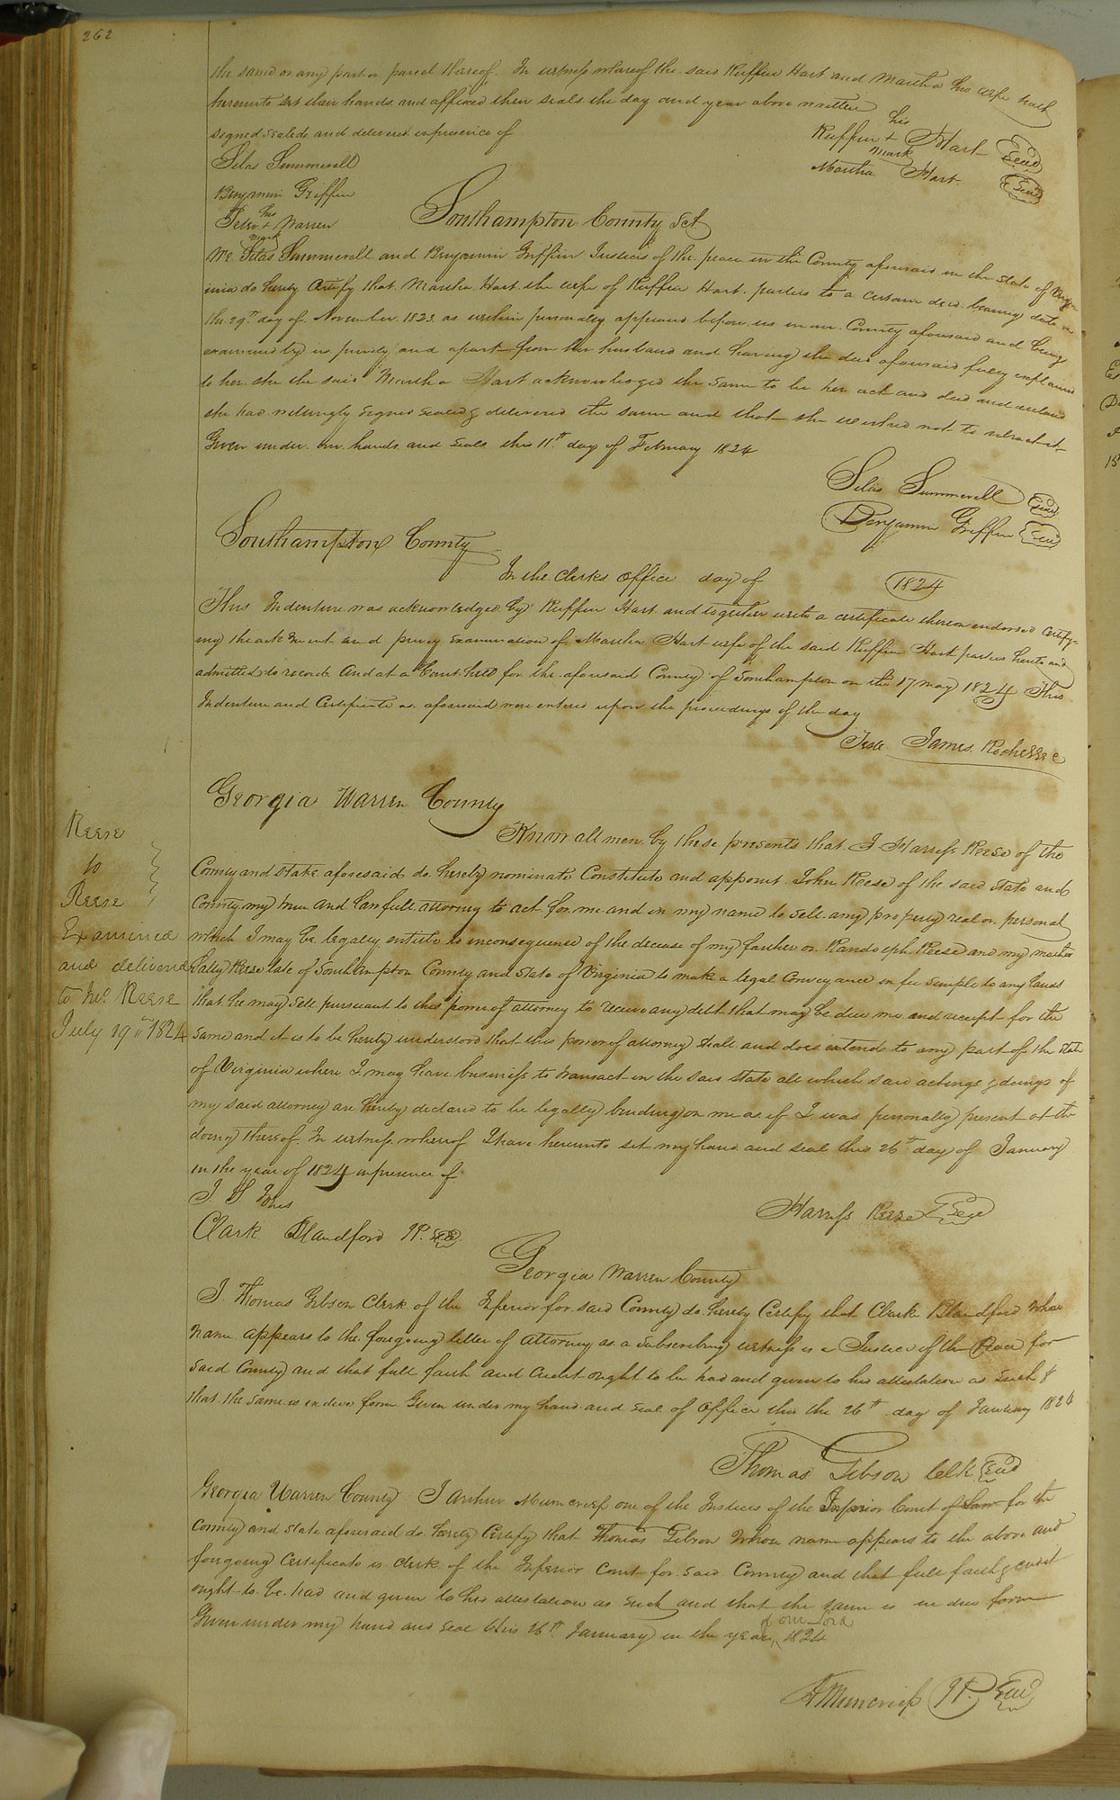 262
the same or any part or parcel thereof. In witness whereof the said Ruffin Hart and Martha his wife hath
hereunto set their hands and affixed their seals the day and year above written
signed sealed and delivered in presence of
his
Ruffin + Hart Seal
mark
Martha Hart Seal
Silas Summerell
Benjamin Griffin
his
Peter + Warren
mark
Southampton County Sct
We Silas Summerell and Benjamin Griffin Justices of the peace in the County aforesaid in the State of Virgi-
nia do hereby Certify that Martha Hart the wife of Ruffin Hart parties to a certain deed bearing date on
the 29th day of November 1823 as within personally appeared before us in our County aforesaid and being
examined by us privily and apart from her husband and having the deed aforesaid fully explained
to her she the said Martha Hart acknowledged the same to be her act and deed and declared
she had willingly signed sealed & delivered the same and that she wished not to retract it
Given under our hands and seals this 11th day of February 1824
Silas Summerell Seal
Benjamin Griffin Seal
Southampton County
In the Clerks office day of 1824
This Indenture was acknowledged by Ruffin Hart and together with a certificate thereon endorsed Certify-
ing the and privy Examination of Martha Hart wife of the said Ruffin Hart parties hereto and
admitted to record. And at a Court held for the aforesaid County of Southampton on the 17 may 1824 This
Indenture and Certificate as aforesaid were entered upon the proceedings of the day
Teste James Rochelle C
Georgia Warren County
Know all men by these presents that I Harress Reese of the
County and State aforesaid do hereby nominate Constitute and appoint John Reese of the said State and
County my true and Lawfull attorney to act for me and in my name to sell any property real or personal
which I may be legally entitle to inconsequence of the decease of my farther on Randolph Reese and my mother
Sally Reese late of Southampton County and State of Virginia to make a legal Conveyance in fee simple to any lands
that he may sell pursuant to this power of attorney to receive any debt that may be due me and receipt for the
same and it is to be hereby understood that this power of attorney shall and does extend to any part of the state
of Virginia where I may have business to transact in the said State all which said actings & doings of
my said attorney are hereby declared to be legally binding on me as if I was personally present at the
doing thereof In witness whereof I have hereunto set my hand and seal this 26th day of January
in the year of 1824 in presence of
Reese
to
Reese
Examined
and delivered
to Jno. Reese
July 19th 1824
Harress Reese Seal
Clark Blandford JP. Seal
Georgia Warren County
I Thomas Gibson Clerk of the Inferior for said County do hereby Certify that Clark Blandford whose
name appears to the foregoing letter of attorney as a subscribing witness is a Justice of the Peace for
said County and that full faith and Credit ought to be had and given to his attestation as such &
that the same is in due form Given under my hand and seal of office this the 26th day of January 1824
Thomas Gibson Clk Seal
Georgia Warren County I Arthur Muncrief one of the Justices of the Inferior Court of Law for the
County and State aforesaid do hereby Certify that Thomas Gibson whose name appears to the above and
foregoing Certificate is Clerk of the Inferior Court for said County and that full faith & credit
ought to be had and given to his attestation as such and that the same is in due form
Given under my hand and seal this 26th January in the year of our Lord 1824
A Muncrief JP. Seal